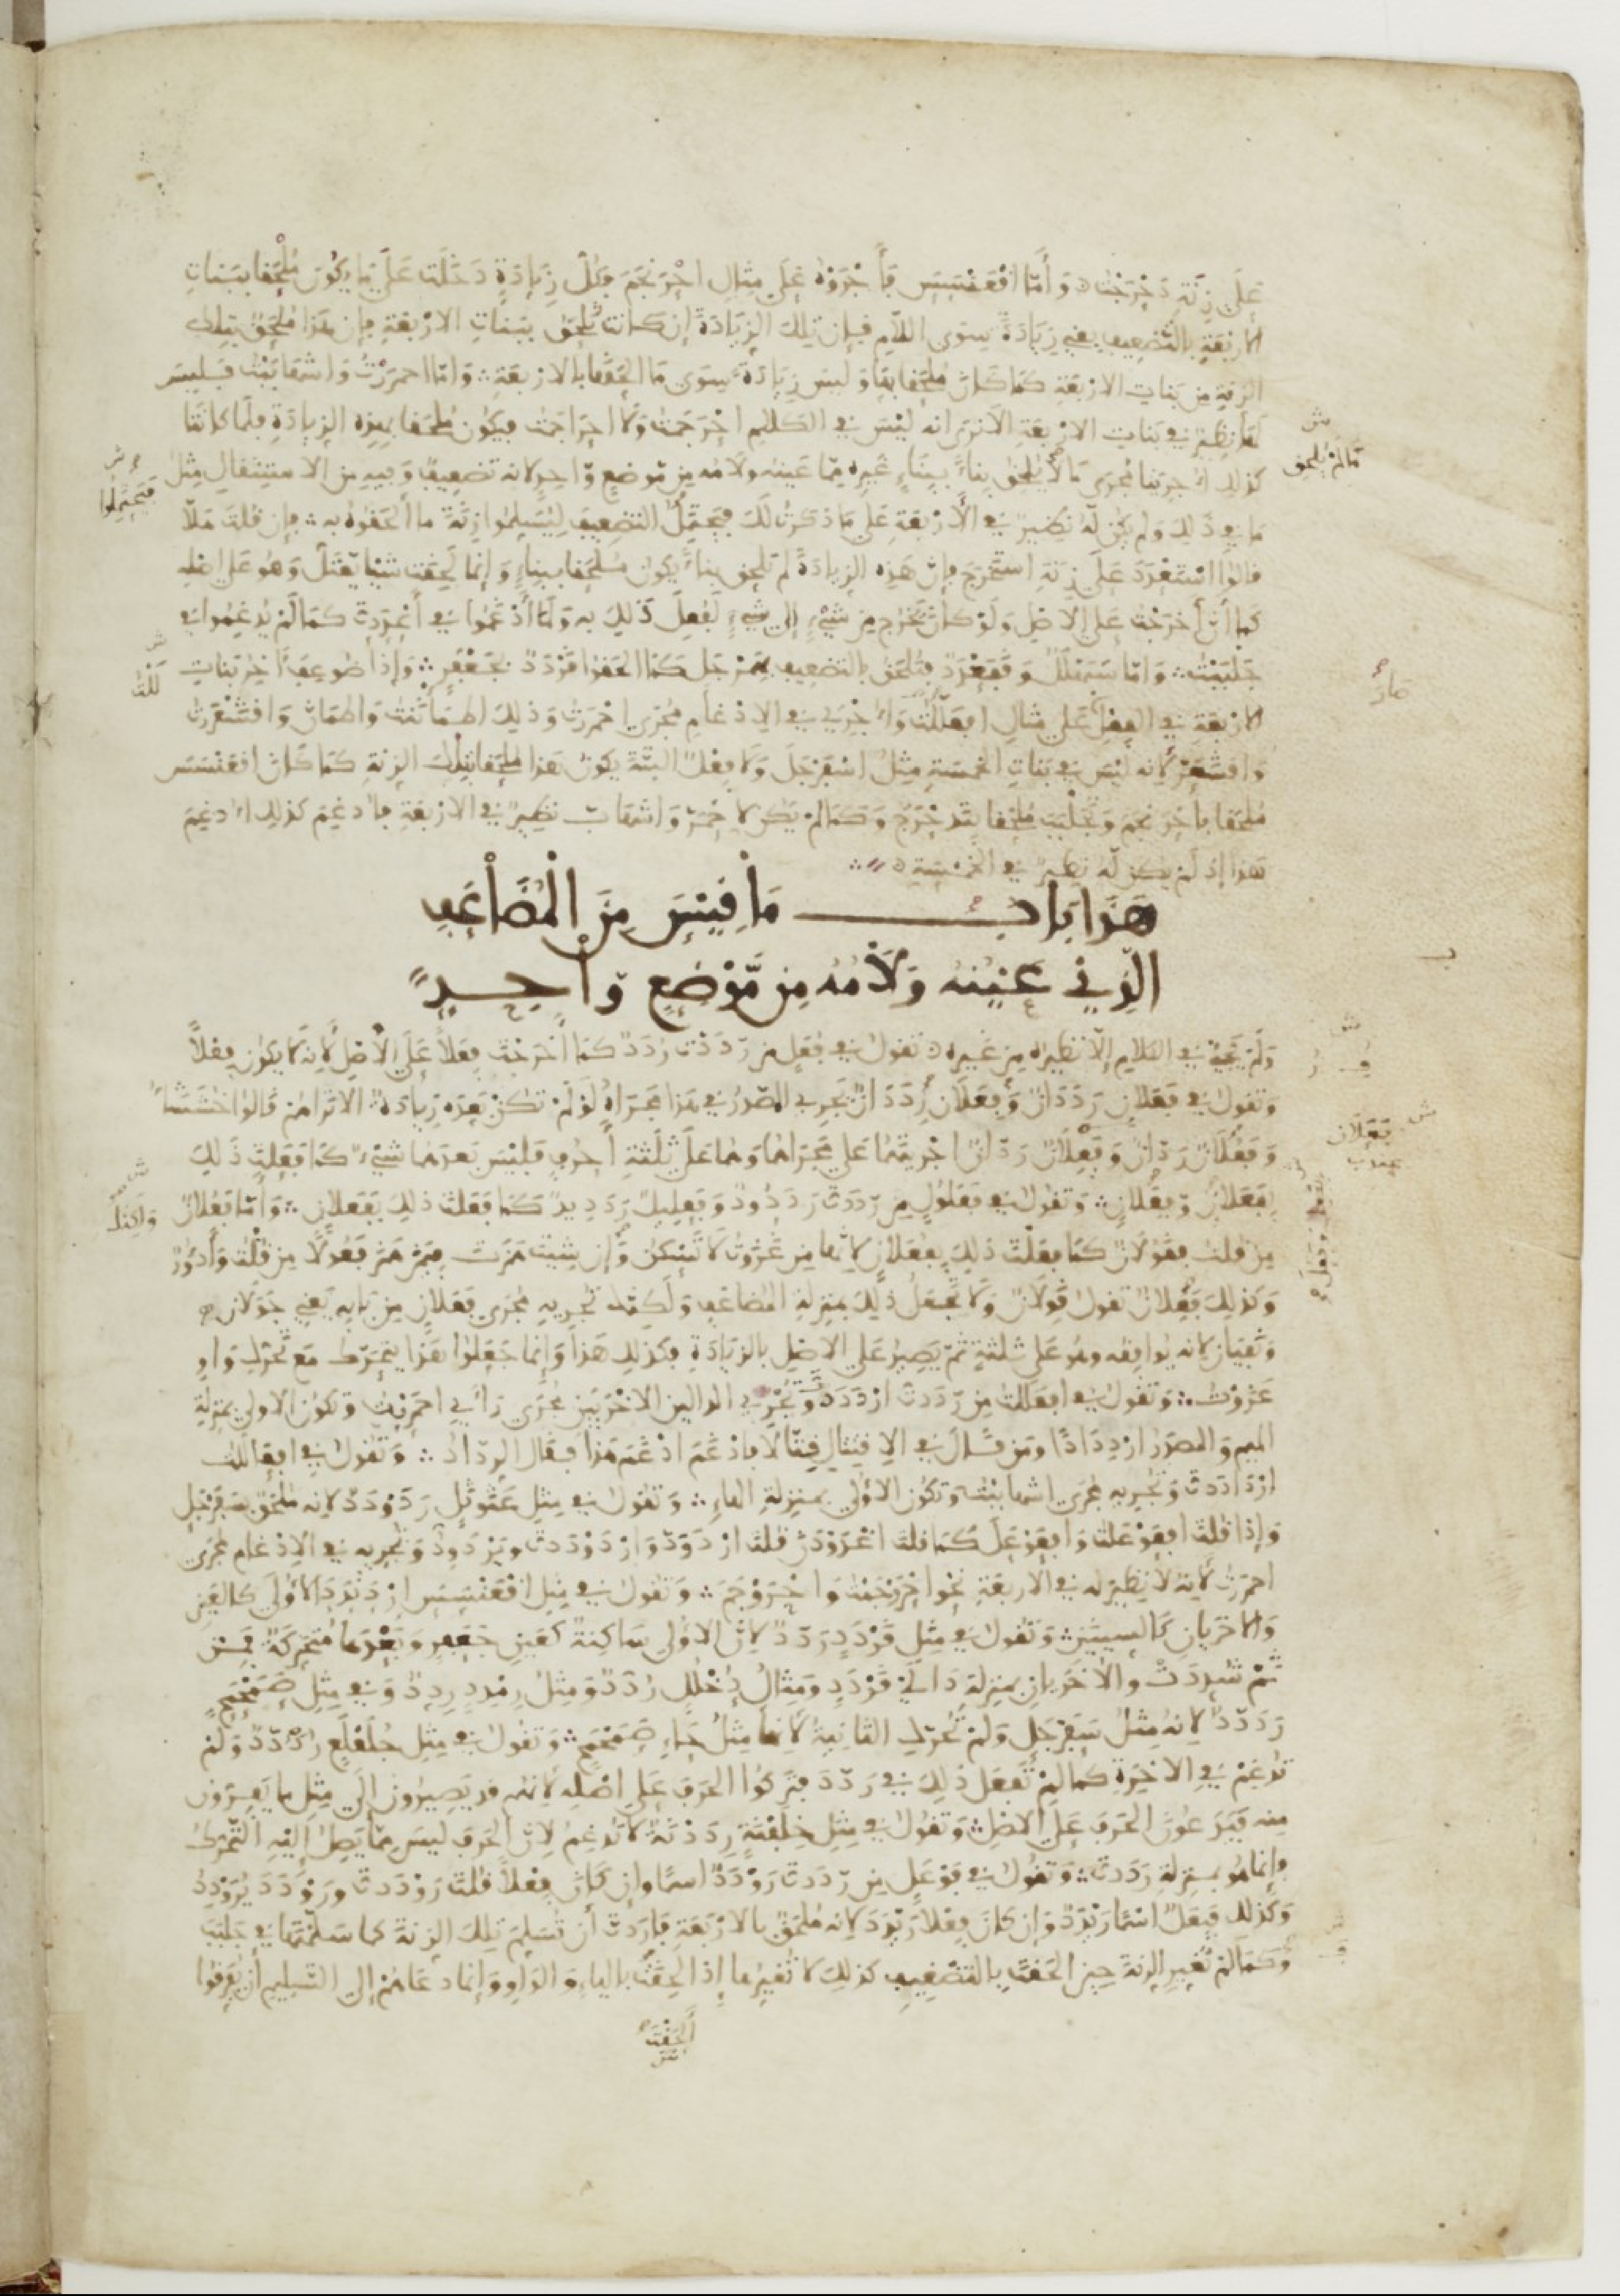 على زنة دحرجت وأما اقعنسس فأجروه على مثال احرنجم فكل زيادة دخلت على ما يكون ملحقا ببنات
الاربعة بالتضعيف يعني زيادة سوى اللام فإن تلك الزيادة إن كانت تلحق ببنات الاربعة فإن هذا ملحق بتلك
الزنة من بنات الاربعة كما كان ملحقا بها وليس زيادة سوى ما الحقها بالاربعة وأما احمررت واشهاببت فليس
لها نظير في بنات الاربعة الا ترى انه ليس في الكلام احرجمت ولا احراجمت فيكون ملحقا بهذه الزيادة فلما كانتا
كذلك اجريتا مجرى ما لم يلحق بناء ببناء غيره مما عينه ولامه من موضع واحد لانه تضعيف وفيه من الاستثقال مثل
ما في ذلك ولم يكن له نظير في الأربعة على ما ذكرت لك فيحتمل التضعيف ليسلموا زنة ما ألحقوه به فإن قلت هلا
قالوا استعدد على زنة استخرج فإن هذه الزيادة لم تلحق بناء يكون ملحقا ببناء وإنما لحقت شيئا يعتل وهو على اصله
كما أن أخرجت على الاصل ولو كان يخرج من شيء إلى شيء لفعل ذلك به ولما أدغموا في أعددت كما لم يدغموا في
جلببت وأما سبهلل وقفعدد فملحق بالتضعيف بهمرجل كما الحقوا قردد بجعفر وإذا ضوعف اخر بنات
الاربعة في الفعل على مثال افعللت واجري في الادغام مجرى احمررت وذلك اطماننت واطمان واقشعررت
واقشعر لانه ليس في بنات الخمسة مثل اسفرجل ولا فعل البتة يكون هذا ملحقا بتلك الزنة كما كان اقعنسس
ملحقا باحرنجم وتجلبب ملحقا بتدحرج وكما لم يكن لاحمر واشهاب نظير في الاربعة فادغم كذلك ادغم
هذا إذ لم يكن له نظير في الخمسة
هذا باب ما قيس من المضاعف
الذي عينه ولامه من موضع واحد
ولم يجئ في الكلام إلا نظيره من غيره تقول في فعل من رددت ردد كما أخرجت فعلا على الأصل لأنه لا يكون فعلا
وتقول في فعلان رددان وفعلان رددان يجري المصدر في هذا مجراه لو لم تكن بعده زيادة الا تراهم قالوا خششاء
وفعلان ردان وفعلان ردان اجريتهما على مجراهما وهما على ثلثة أحرف فليس بعدهما شيء كما فعلت ذلك
بفعلان وفعلان وتقول في فعلول من رددت ردود وفعليل رديد كما فعلت ذلك بفعلان وأما فعلان
من قلت فقولان كما فعلت ذلك بفعلان لانها من غزوت لا تسكن وإن شئت همزت فيمن همز فعولا من قلت وأدؤر
وكذلك فعلان تقول قولان ولا تجعل ذلك بمنزلة المضاعف ولكنك تجريه مجرى فعلان من بابه يعني جولان
ونفيان لانه يوافقه وهو على ثلثة ثم يصير على الاصل بالزيادة فكذلك هذا وإنما جعلوا هذا يتحرك مع تحرك واو
غزوت وتقول في افعللت من رددت ارددت وتجري الدالين الاخريين مجرى راءي احمررت وتكون الاولى بمنزلة
الميم والمصدر ارددادا ومن قال في الافتعال قتالا فادغم ادغم هذا فقال الرداد وتقول في افعاللت
اردادت وتجريه مجرى اشهاببت وتكون الاولى بمنزلة الهاء وتقول في مثل عثوثل ردودد لانه ملحق بسفرجل
وإذا قلت افعوعلت وافعوعل كما قلت اغدودن قلت اردود واردودت ويردود وتجريه في الادغام مجرى
احمررت لانه لا نظير له في الاربعة نحو احروجمت واحروجم وتقول في مثل اقعنسس ارديدد الاولى كالعين
والاخريان كالسينين وتقول في مثل قردد ردد لان الاولى ساكنة كعين جعفر وبعدها متحركة فمن
ثم شددت والأخريان بمنزلة دالي قردد ومثال دخلل ردد ومثل رمدد ردد وفي مثل صمحمح
رددد لانه مثل سفرجل ولم تحرك الثانية لانها مثل حاء صمحمح وتقول في مثل جلعلع رددد ولم
تدغم في الاخرة كما لم تفعل ذلك في ردد فتركوا الحرف على اصله لانهم قد يصيرون إلى مثل ما يفرون
منه فيدعون الحرف على الاصل وتقول في مثل خلفنة رددنة لا تدغم لان الحرف ليس مما يصل إليه التحريك
فإنما هو بمنزلة رددت وتقول في فوعل من رددت رودد اسما وإن كان فعلا قلت روددت وردد يرودد
وكذلك فيعل اسما ريدد وإن كان فعلا ريدد لانه ملحق بالاربعة فاردت أن تسلم تلك الزنة كما سلمتها في جلبب
وكما لم تغير الزنة حين الحقت بالتضعيف كذلك لا تغيرها إذا الحقت بالياء والواو وإنما دعاهم إلى التسليم أن يفرقوا
ألحقت
ش
ما لم يلحق
فيحتملوا
فعلان